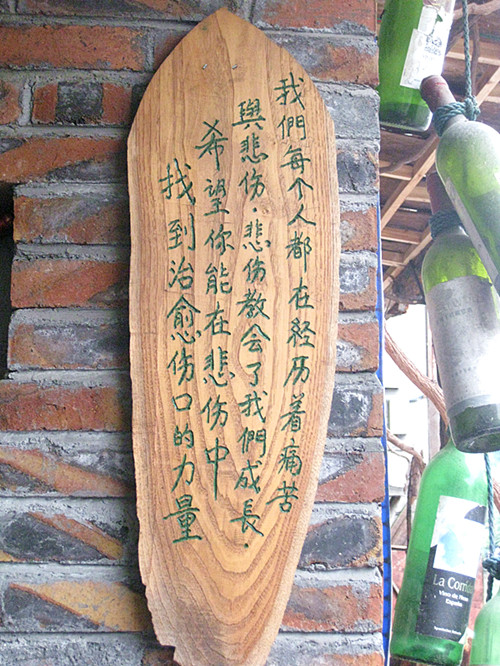 我們每个人都在经历着痛苦
與悲伤.悲伤教会了我們成長.
希望你能在悲伤中
找到治愈伤口的力量
La Corrida
Vino de Mesa
España